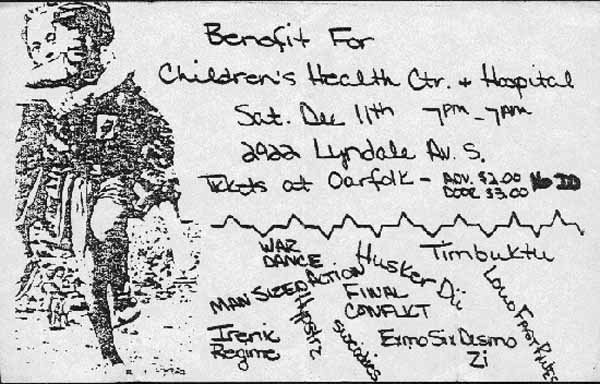 Benefit For
Children's Health Ctr. + Hospital
Sat. Dec 11th 7PM - 7AM
2922 Lyndale Av. S.
Tickets at Oarfolk - ADV. $2.00 No ID
DOOR $3.00
WAR
DANCE
Husker Dü
Timbuktu
MAN SIZED ACTION
Hypstrz
FINAL
CONFLICT
Loud Fast Rules
Irenic
Regime